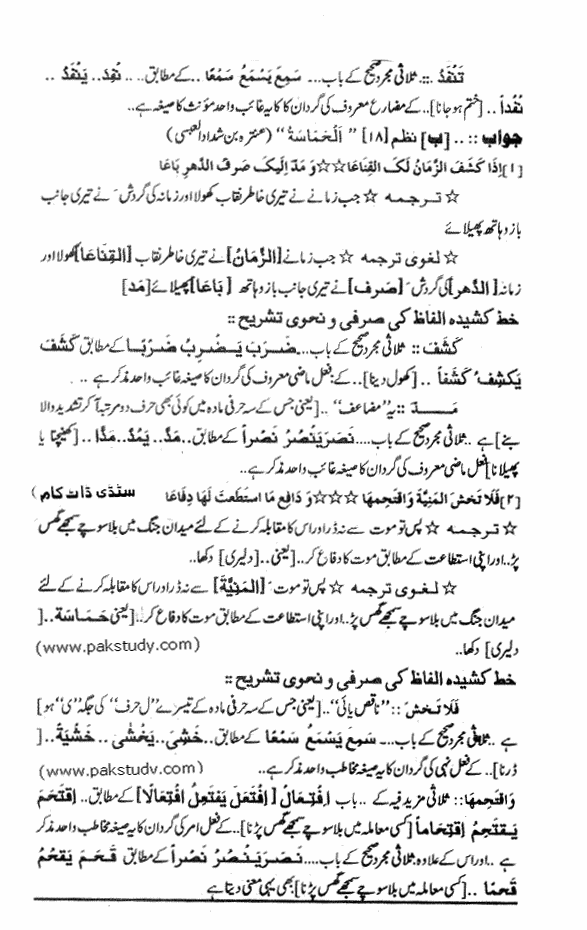 تَنْفَدُ .::. ثلاثی مجرد صحیح کے باب... سَمِعَ یَسْمَعُ سَمْعًا ..کے مطابق.. .. نَفِدَ.. یَنْفَدُ ..
نَفْداً .. [ختم ہو جانا]..کے مضارع معروف کی گردان کا یہ غائب واحد مؤنث کا صیغہ ہے..
جواب :: .. [ب] نظم [۱۸] "اَلْحَمَاسَةُ" (عنترہ بن شداد العبسی)
[۱] اِذَا کَشَفَ الزَّمَانُ لَکَ القِنَاعَا☆☆وَ مَدَّ اِلَیکَ صَرفُ الدَّهرِ بَاعَا
☆ تـرجمه ☆ جب زمانے نے تیری خاطر نقاب کھولا اور زمانہ کی گردش نے تیری جانب
بازو ہاتھ پھیلائے
☆ لغوی ترجمه ☆ جب زمانے [الزَّمَانُ] نے تیری خاطر نقاب [القِنَاعَا] کھولا اور
زمانہ [الدَّهر] کی گردش [صَرف] نے تیری جانب بازو ہاتھ [بَاعَا] پھیلائے [مَدّ]
خط کشیدہ الفاظ کی صرفی و نحوی تشریح ::
کَشَفَ :: ثلاثی مجرد صحیح کے باب... ضَـرَبَ یَـضْـرِبُ ضَـرْبًـا کے مطابق کَشَفَ
یَکشِفُ کَشفاً .. [کھول دینا] .. کے فعل ماضی معروف کی گردان کا صیغہ غائب واحد مذکر ہے ..
مَـــدَّ :: یہ "مضاعف" .. [یعنی جس کے سہ حرفی مادہ میں کوئی بھی حرف دو مرتبہ آ کر تشدید والا
بنے] ہے .. ثلاثی مجرد صحیح کے باب.... نَصَرَ یَنْصُرُ نَصْراً کے مطابق.. مَدَّ.. یَمُدُّ.. مَدًّا .. [کھینچنا یا
پھیلانا] فعل ماضی معروف کی گردان کا صیغہ غائب واحد مذکر ہے..
[۲] فَلَا تَخشَ المَنِیَّةَ وَاقتَحِمهَا ☆☆☆ وَ دَافِع مَا استَطَعتَ لَهَا دِفَاعَا سٹڈی ڈاٹ کام )
☆ تـرجمه ☆ پس تو موت سے نہ ڈر اور اس کا مقابلہ کرنے کے لئے میدان جنگ میں بلا سوچے سمجھے گھس
پڑ.. اور اپنی استطاعت کے مطابق موت کا دفاع کر.. [یعنی.. [دلیری] دکھا..
☆ لغوی ترجمه ☆ پس تو موت [المَنِیَّةَ] سے نہ ڈر اور اس کا مقابلہ کرنے کے لئے
میدان جنگ میں بلا سوچے سمجھے گھس پڑ.. اور اپنی استطاعت کے مطابق موت کا دفاع کر.. [یعنی حَمَاسَة.. [
دلیری] دکھا.. (www.pakstudy.com)
خط کشیدہ الفاظ کی صرفی و نحوی تشریح ::
فَلَا تَـخشَ :: "ناقص یائی".. [یعنی جس کے سہ حرفی مادہ کے تیسرے "ل حرف" کی جگہ "ی" ہو]
ہے .. ثلاثی مجرد صحیح کے باب... سَمِعَ یَسْمَعُ سَمْعًا کے مطابق.. خَشِیَ.. یَخْشٰی .. خَشْیَةً.. [
ڈرنا].. کے فعل نہی کی گردان کا یہ صیغہ مخاطب واحد مذکر ہے.. (www.pakstudy.com)
وَاقتَحِمهَا :: ثلاثی مزید فیہ کے .. باب اِفْتِعَالٌ [اِفْتَعَلَ یَفتَعِلُ اِفتِعَالًا] کے مطابق.. اِقتَحَمَ
یَـقتَحِمُ اِقتِحَاماً [کسی معاملہ میں بلا سوچے سمجھے گھس پڑنا].. کے فعل امر کی گردان کا یہ صیغہ مخاطب واحد مذکر
ہے .. اور اس کے علاوہ ثلاثی مجرد صحیح کے باب.... نَـصَـرَ یَـنْصُرُ نَصْراً کے مطابق قَـحَمَ یَقحُمُ
قَحمًا .. [کسی معاملہ میں بلا سوچے سمجھے گھس پڑنا] بھی یہی معنی دیتا ہے